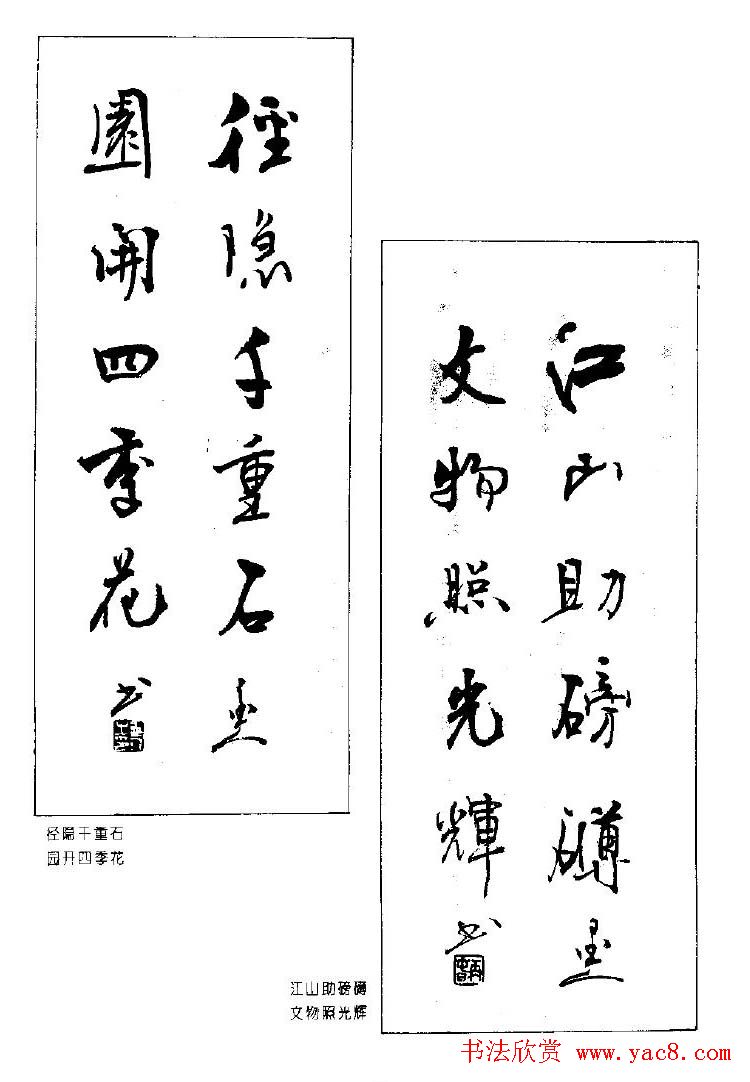 徑隐千重石
園開四季花
书
径隐千重石
园开四季花
江山助磅礴
文物照光輝
书
江山助磅礴
文物照光辉
书法欣赏 www.yac8.com